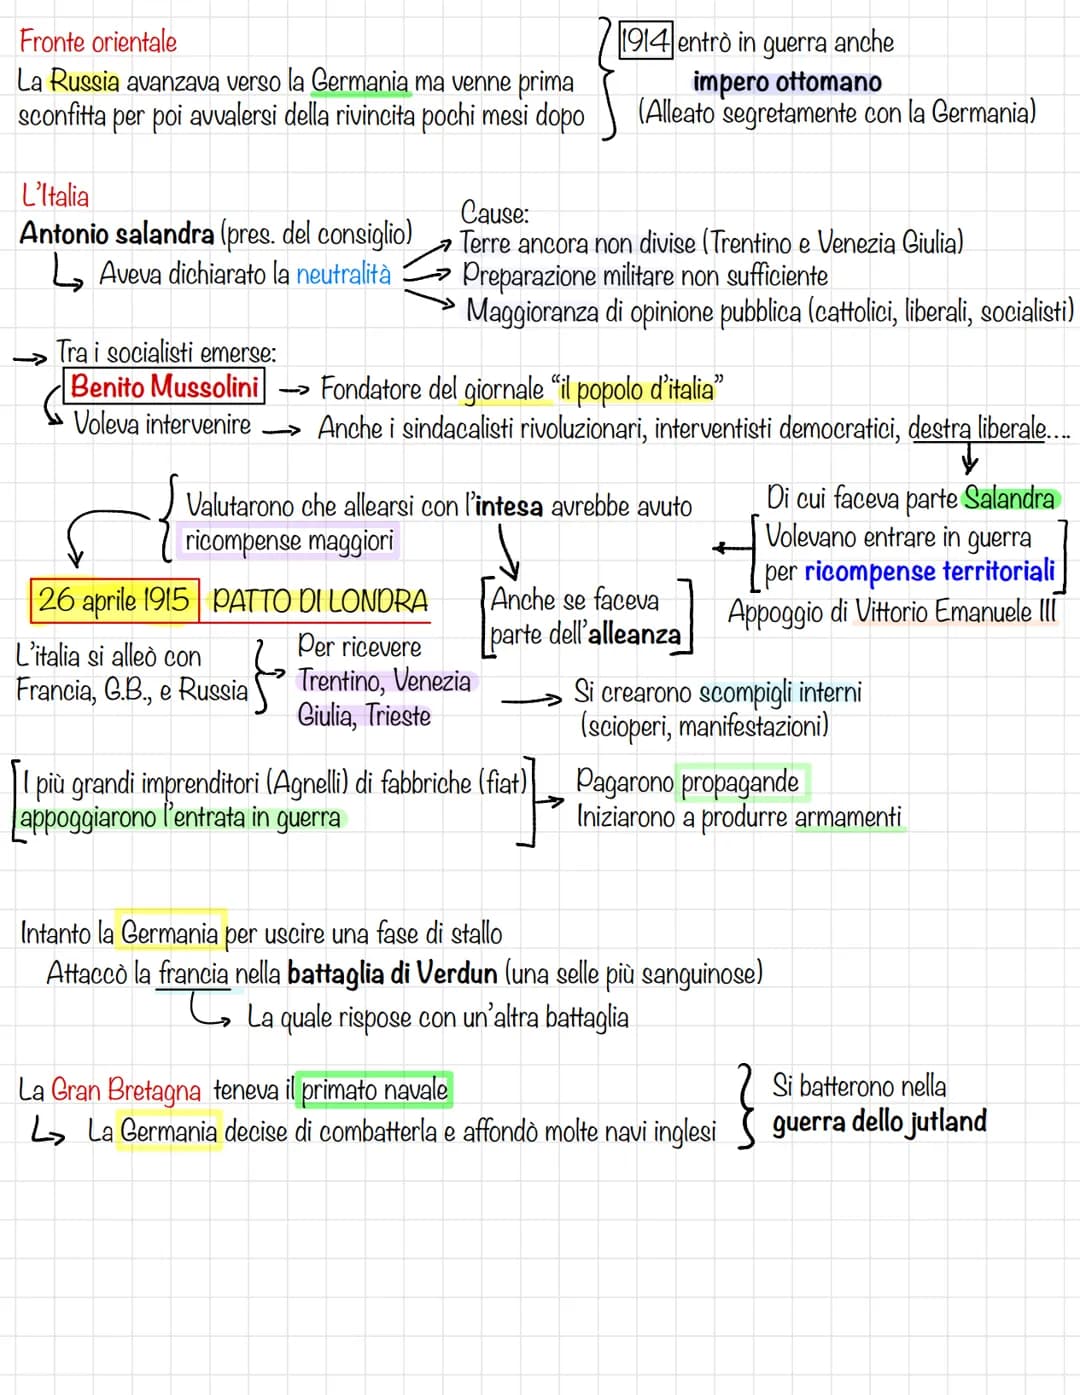 Fronte orientale
La Russia avanzava verso la Germania ma venne prima
sconfitta per poi avvalersi della rivincita pochi mesi dopo
1914 entrò in guerra anche
impero ottomano
(Alleato segretamente con la Germania)
L'Italia
Antonio salandra (pres. del consiglio)
Aveva dichiarato la neutralità
Cause:
Terre ancora non divise (Trentino e Venezia Giulia)
Preparazione militare non sufficiente
Maggioranza di opinione pubblica (cattolici, liberali, socialisti)
Tra i socialisti emerse:
Benito Mussolini → Fondatore del giornale “il popolo d'italia”
Voleva intervenire → Anche i sindacalisti rivoluzionari, interventisti democratici, destra liberale....
Di cui faceva parte Salandra
Volevano entrare in guerra
per ricompense territoriali
Appoggio di Vittorio Emanuele III
Valutarono che allearsi con l'intesa avrebbe avuto
ricompense maggiori
Anche se faceva
parte dell'alleanza
26 aprile 1915 PATTO DI LONDRA
L'italia si alleò con
Francia, G.B., e Russia
Per ricevere
Trentino, Venezia
Giulia, Trieste
Si crearono scompigli interni
(scioperi, manifestazioni)
I più grandi imprenditori (Agnelli) di fabbriche (fiat)
appoggiarono l'entrata in guerra
Pagarono propagande
Iniziarono a produrre armamenti
Intanto la Germania per uscire una fase di stallo
Attaccò la francia nella battaglia di Verdun (una selle più sanguinose)
La quale rispose con un'altra battaglia
La Gran Bretagna teneva il primato navale
La Germania decise di combatterla e affondò molte navi inglesi
Si batterono nella
guerra dello jutland